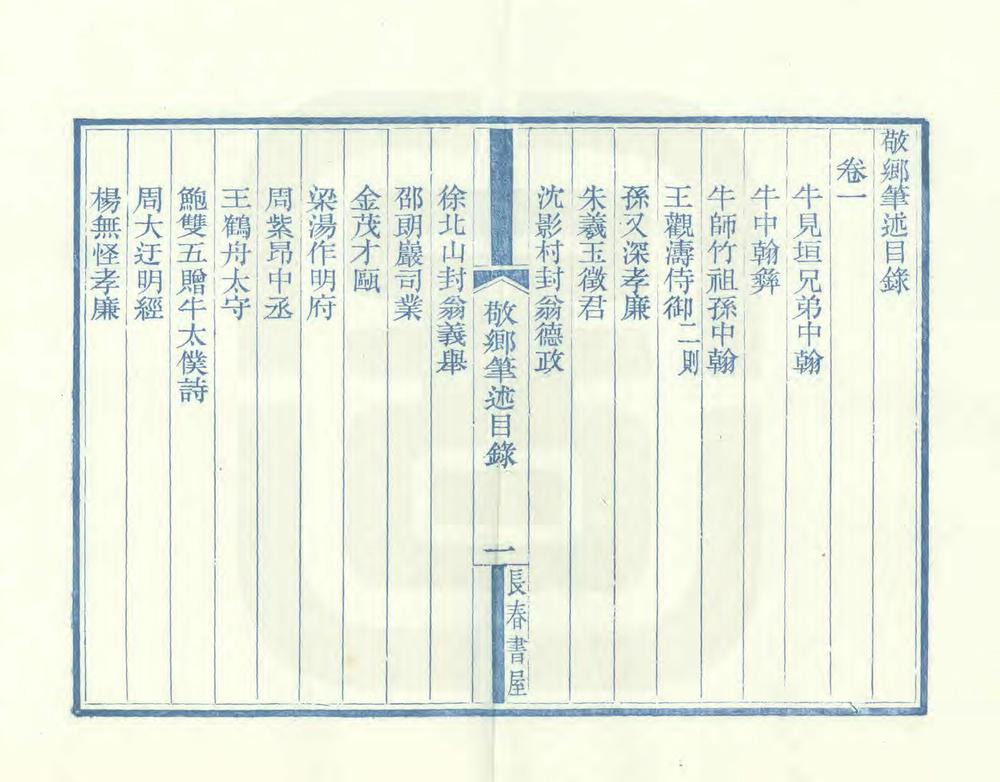 敬鄉筆述目錄
卷一
牛見垣兄弟中翰
牛中翰彝
牛師竹祖孫中翰
王觀濤侍御二則
孫又深孝廉
朱羲玉徵君
沈影村封翁德政
敬鄉筆述目錄
一
長春書屋
徐北山封翁義舉
邵朗巖司業
金茂才甌
梁湯作明府
周紫昂中丞
王鶴舟太守
鮑雙五贈牛太僕詩
周大迂明經
楊無怪孝廉